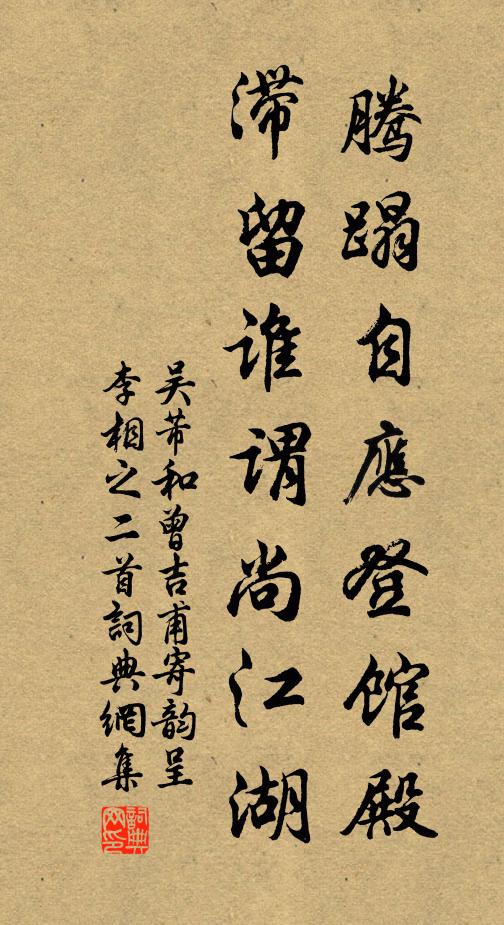 騰蹋自應登館殿
滯留誰謂尚江湖
吳芾和曾吉甫寄韵呈
李相之二首詞典網集
詞典
网印